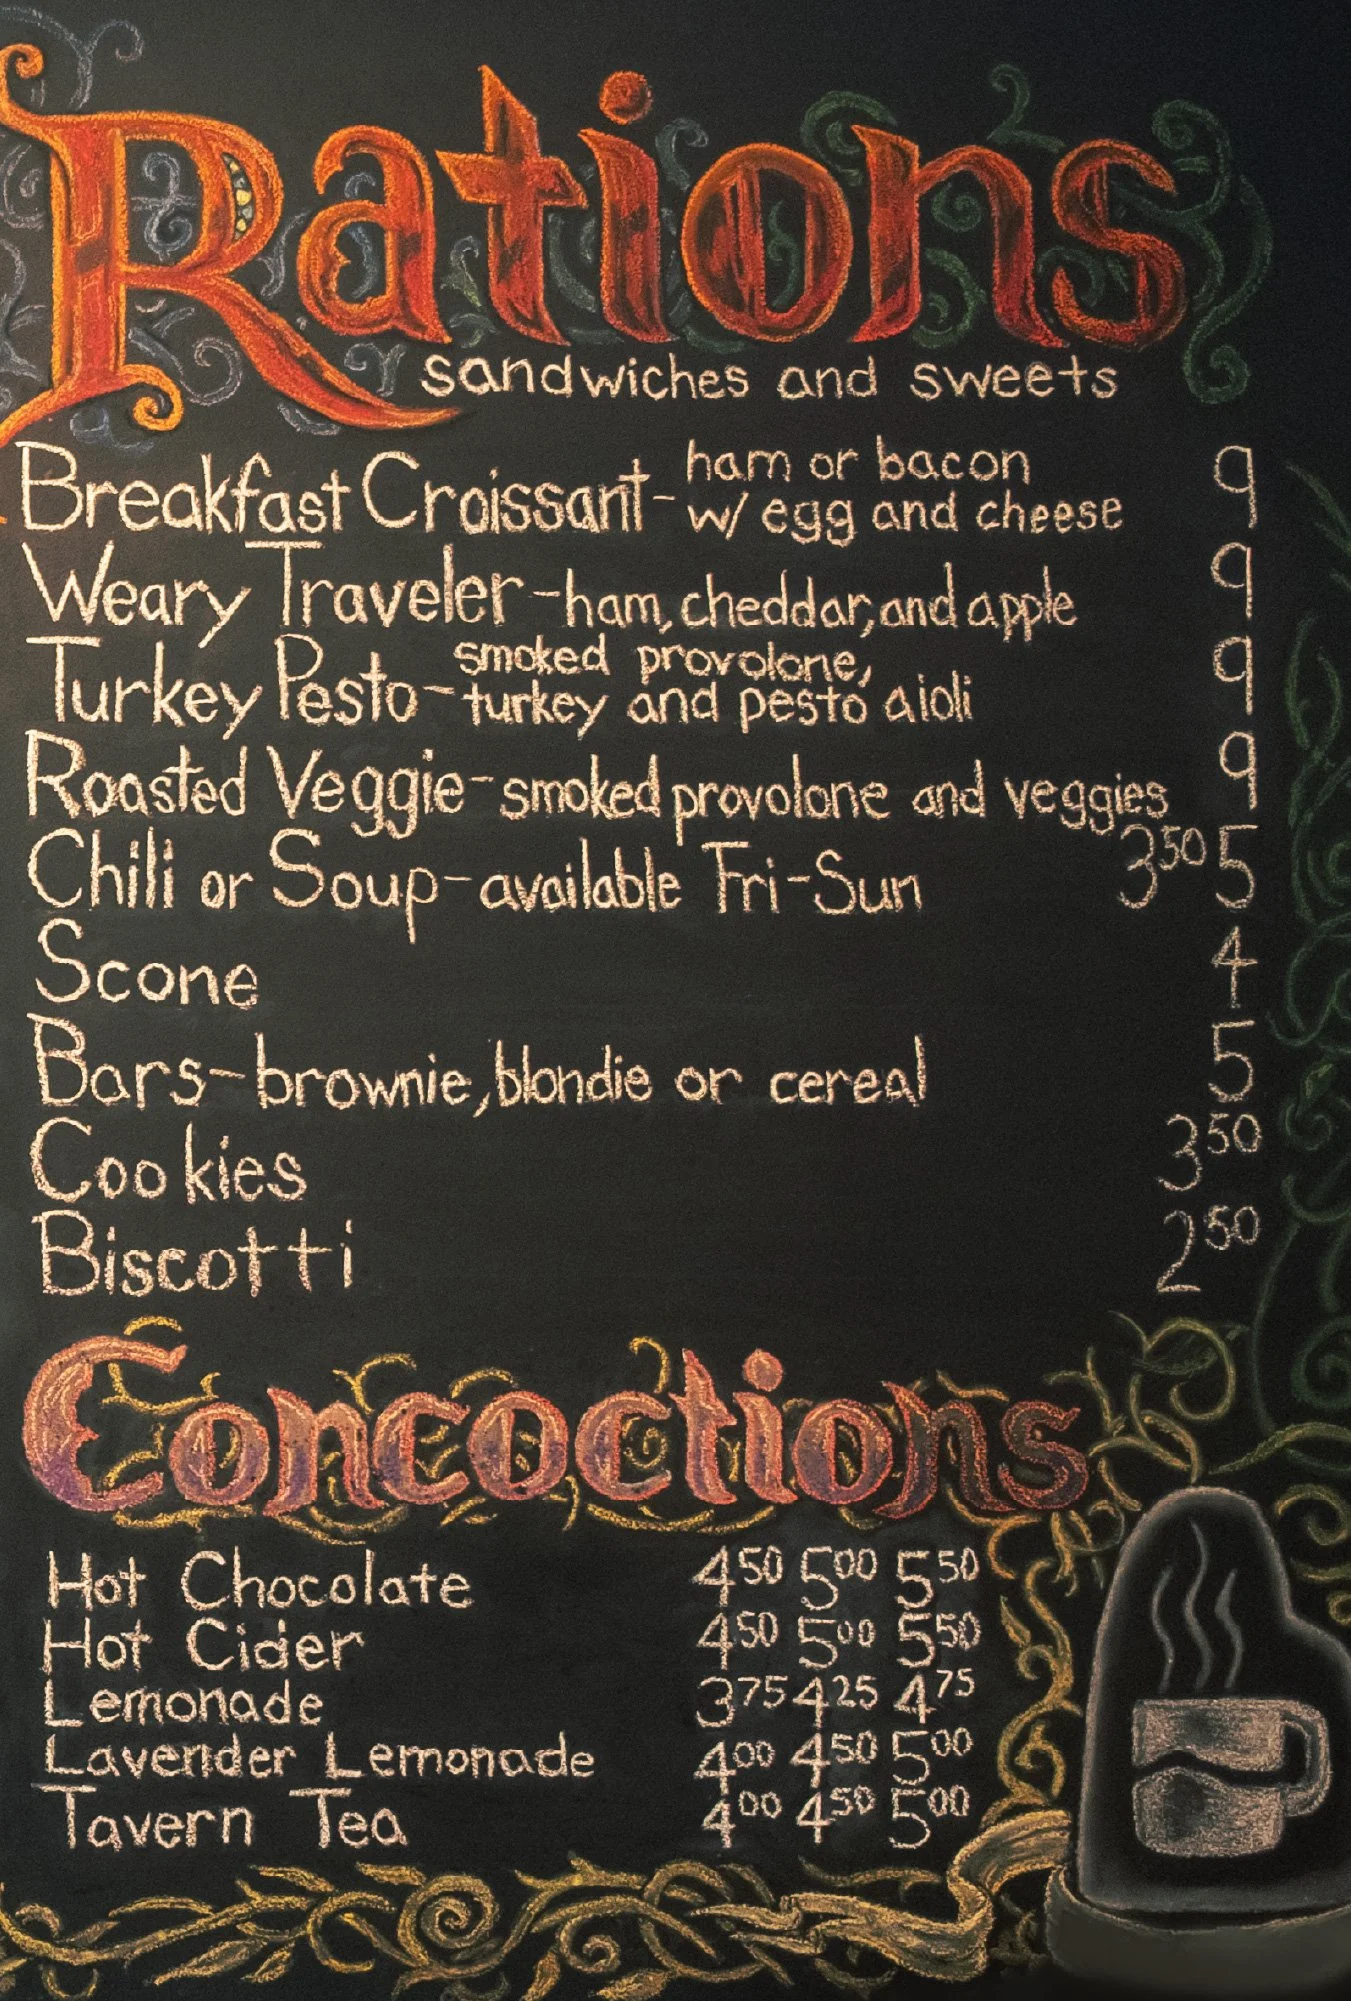 Rations
sandwiches and sweets
Breakfast Croissant - ham or bacon w/ egg and cheese 9
Weary Traveler - ham, cheddar, and apple 9
Turkey Pesto - smoked provolone, turkey and pesto aioli 9
Roasted Veggie - smoked provolone and veggies 9
Chili or Soup - available Fri-Sun 3.50 5
Scone 4
Bars - brownie, blondie or cereal 5
Cookies 3.50
Biscotti 2.50
Concoctions
Hot Chocolate 4.50 5.00 5.50
Hot Cider 4.50 5.00 5.50
Lemonade 3.75 4.25 4.75
Lavender Lemonade 4.00 4.50 5.00
Tavern Tea 4.00 4.50 5.00